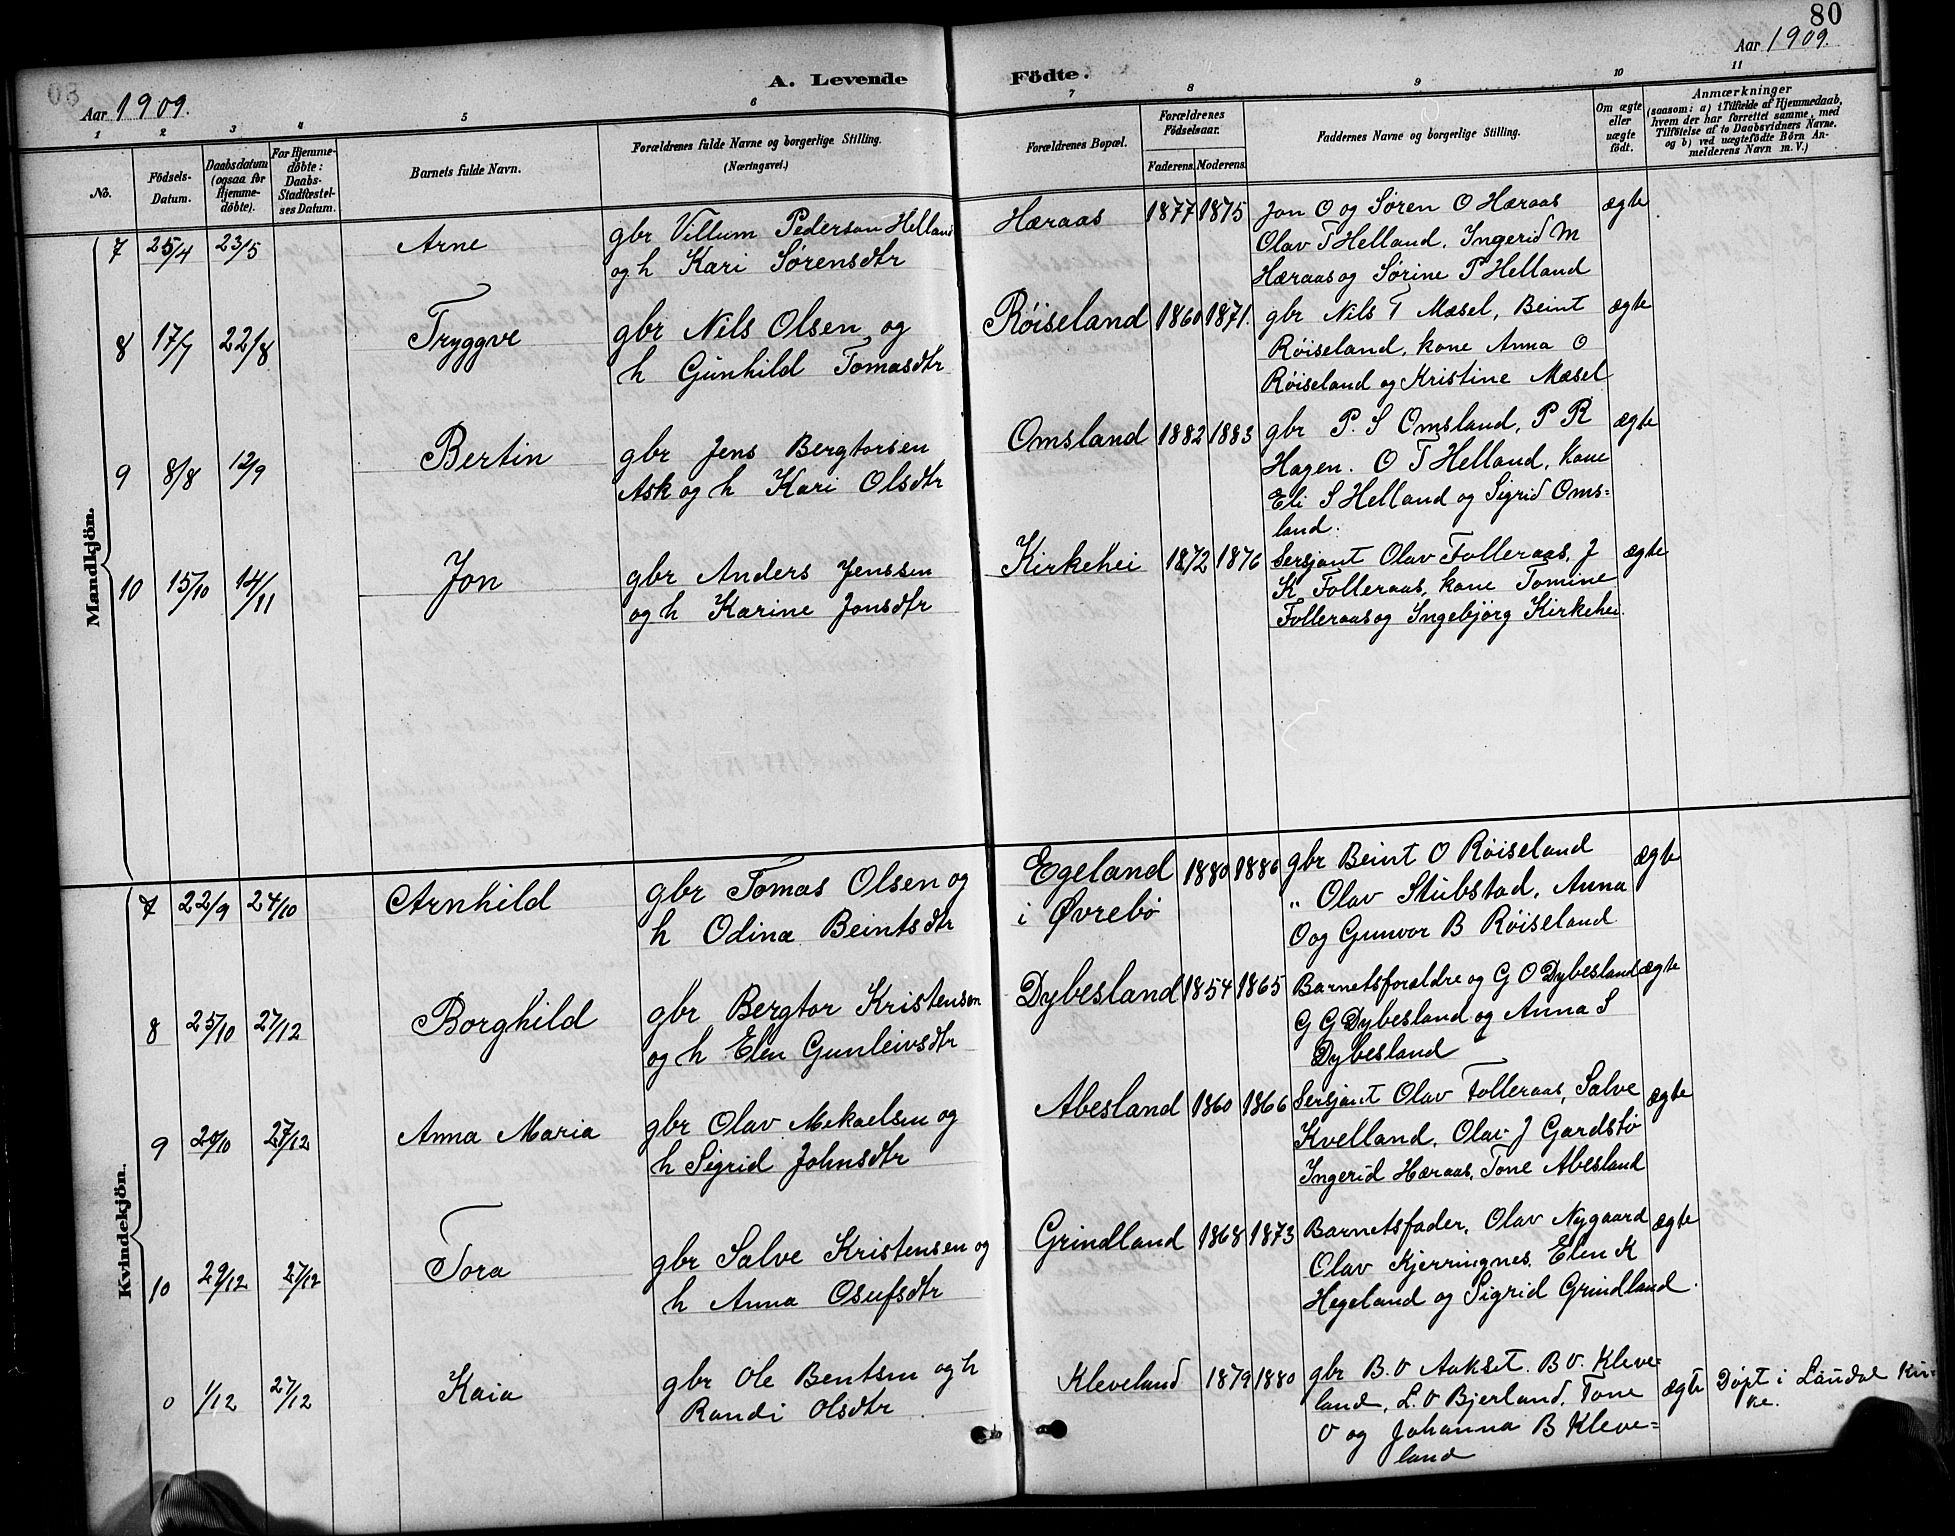 80
Aar 1909.
A. Levende Födte.
Aar 1909.
1 2 3 4 5 6 7 8 9 10 11
No.
Födsels-
Datum.
Daabsdatum
(ogsaa for
Hjemme-
döbte).
For Hjemme-
döbte:
Daabs-
Stadfæstel-
ses Datum.
Barnets fulde Navn.
Forældrenes fulde Navne og borgerlige Stilling.
(Næringsvei.)
Forældrenes Bopæl.
Forældrenes
Födselsaar.
Faderens. Moderens.
Faddernes Navne og borgerlige Stilling.
Om ægte
eller
uægte
født.
Anmærkninger
(saasom: a) i Tilfælde af Hjemmedaab,
hvem der har forrettet samme, med
Tilföielse af to Daabsvidners Navne,
og b) ved uægtefödte Börn An-
melderens Navn m. V.)
Mandkjön.
7 25/4 23/5 Arne
gbr Villum Pederson Helland
og h Kari Sørensdtr
Hæraas 1877 1875
Jon O og Søren O Hæraas
Olav T Helland, Ingerid M
Hæraas og Sørine P Helland
ægte
8 17/7 22/8 Tryggve
gbr Nils Olsen og
h Gunhild Tomasdtr
Røiseland 1860 1871.
gbr Nils T Mæsel, Beint
Røiseland, kone Anna O
Røiseland og Kristine Mæsel
ægte
9 8/8 12/9 Bertin
gbr Jens Bergtorsen
Ask og h Kari Olsdtr
Omsland 1882 1883
gbr P. S Omsland, P R
Hagen. O T Helland, kone
Eli S Helland og Sigrid Oms=
land.
ægte
10 15/10 14/11 Jon
gbr Anders Jenssen
og h Karine Jonsdtr
Kirkehei 1872 1876
Sersjant Olav Folleraas, J
K Folleraas, kone Tomine
Folleraas og Ingebjörg Kirkehei.
ægte
Kvindekjön.
7 22/9 24/10 Arnhild
gbr Tomas Olsen og
h Odina Beintsdtr
Egeland
i Øvrebö
1880 1886
gbr Beint O Røiseland
" Olav Stubstad, Anna
O og Gunvor B Røiseland
ægte
8 25/10 27/12 Borghild
gbr Bergtor Kristensen
og h Elen Gunleivsdtr
Dybesland 1854 1865
Barnetsforældre og G O Dybesland
G G Dybesland og Anna S
Dybesland
ægte
9 27/12 Anna Maria
gbr Olav Mikaelsen og
h Sigrid Johnsdtr
Abesland 1860 1866
Sersjant Olav Folleraas, Salve
Kvelland, Olav J Gardstö
Ingerid Hæraas, Tone Abesland
ægte
10 27/12 Tora
gbr Salve Kristensen og
h Anna Osufsdtr
Grindland 1868 1873
Barnetsfader, Olav Nygaard
Olav Kjerringnes, Elen K
Hegeland og Sigrid Grindland.
ægte
0 1/12 27/12 Kaia
gbr Ole Bentsen og h
Randi Olsdtr
Kleveland 1879 1880
gbr B. O Aakset. B O. Kleve=
land, L. O Bjerland, Tone
O og Johanna B Kleve=
land
ægte
Døpt i Laudal Kir-
ke.